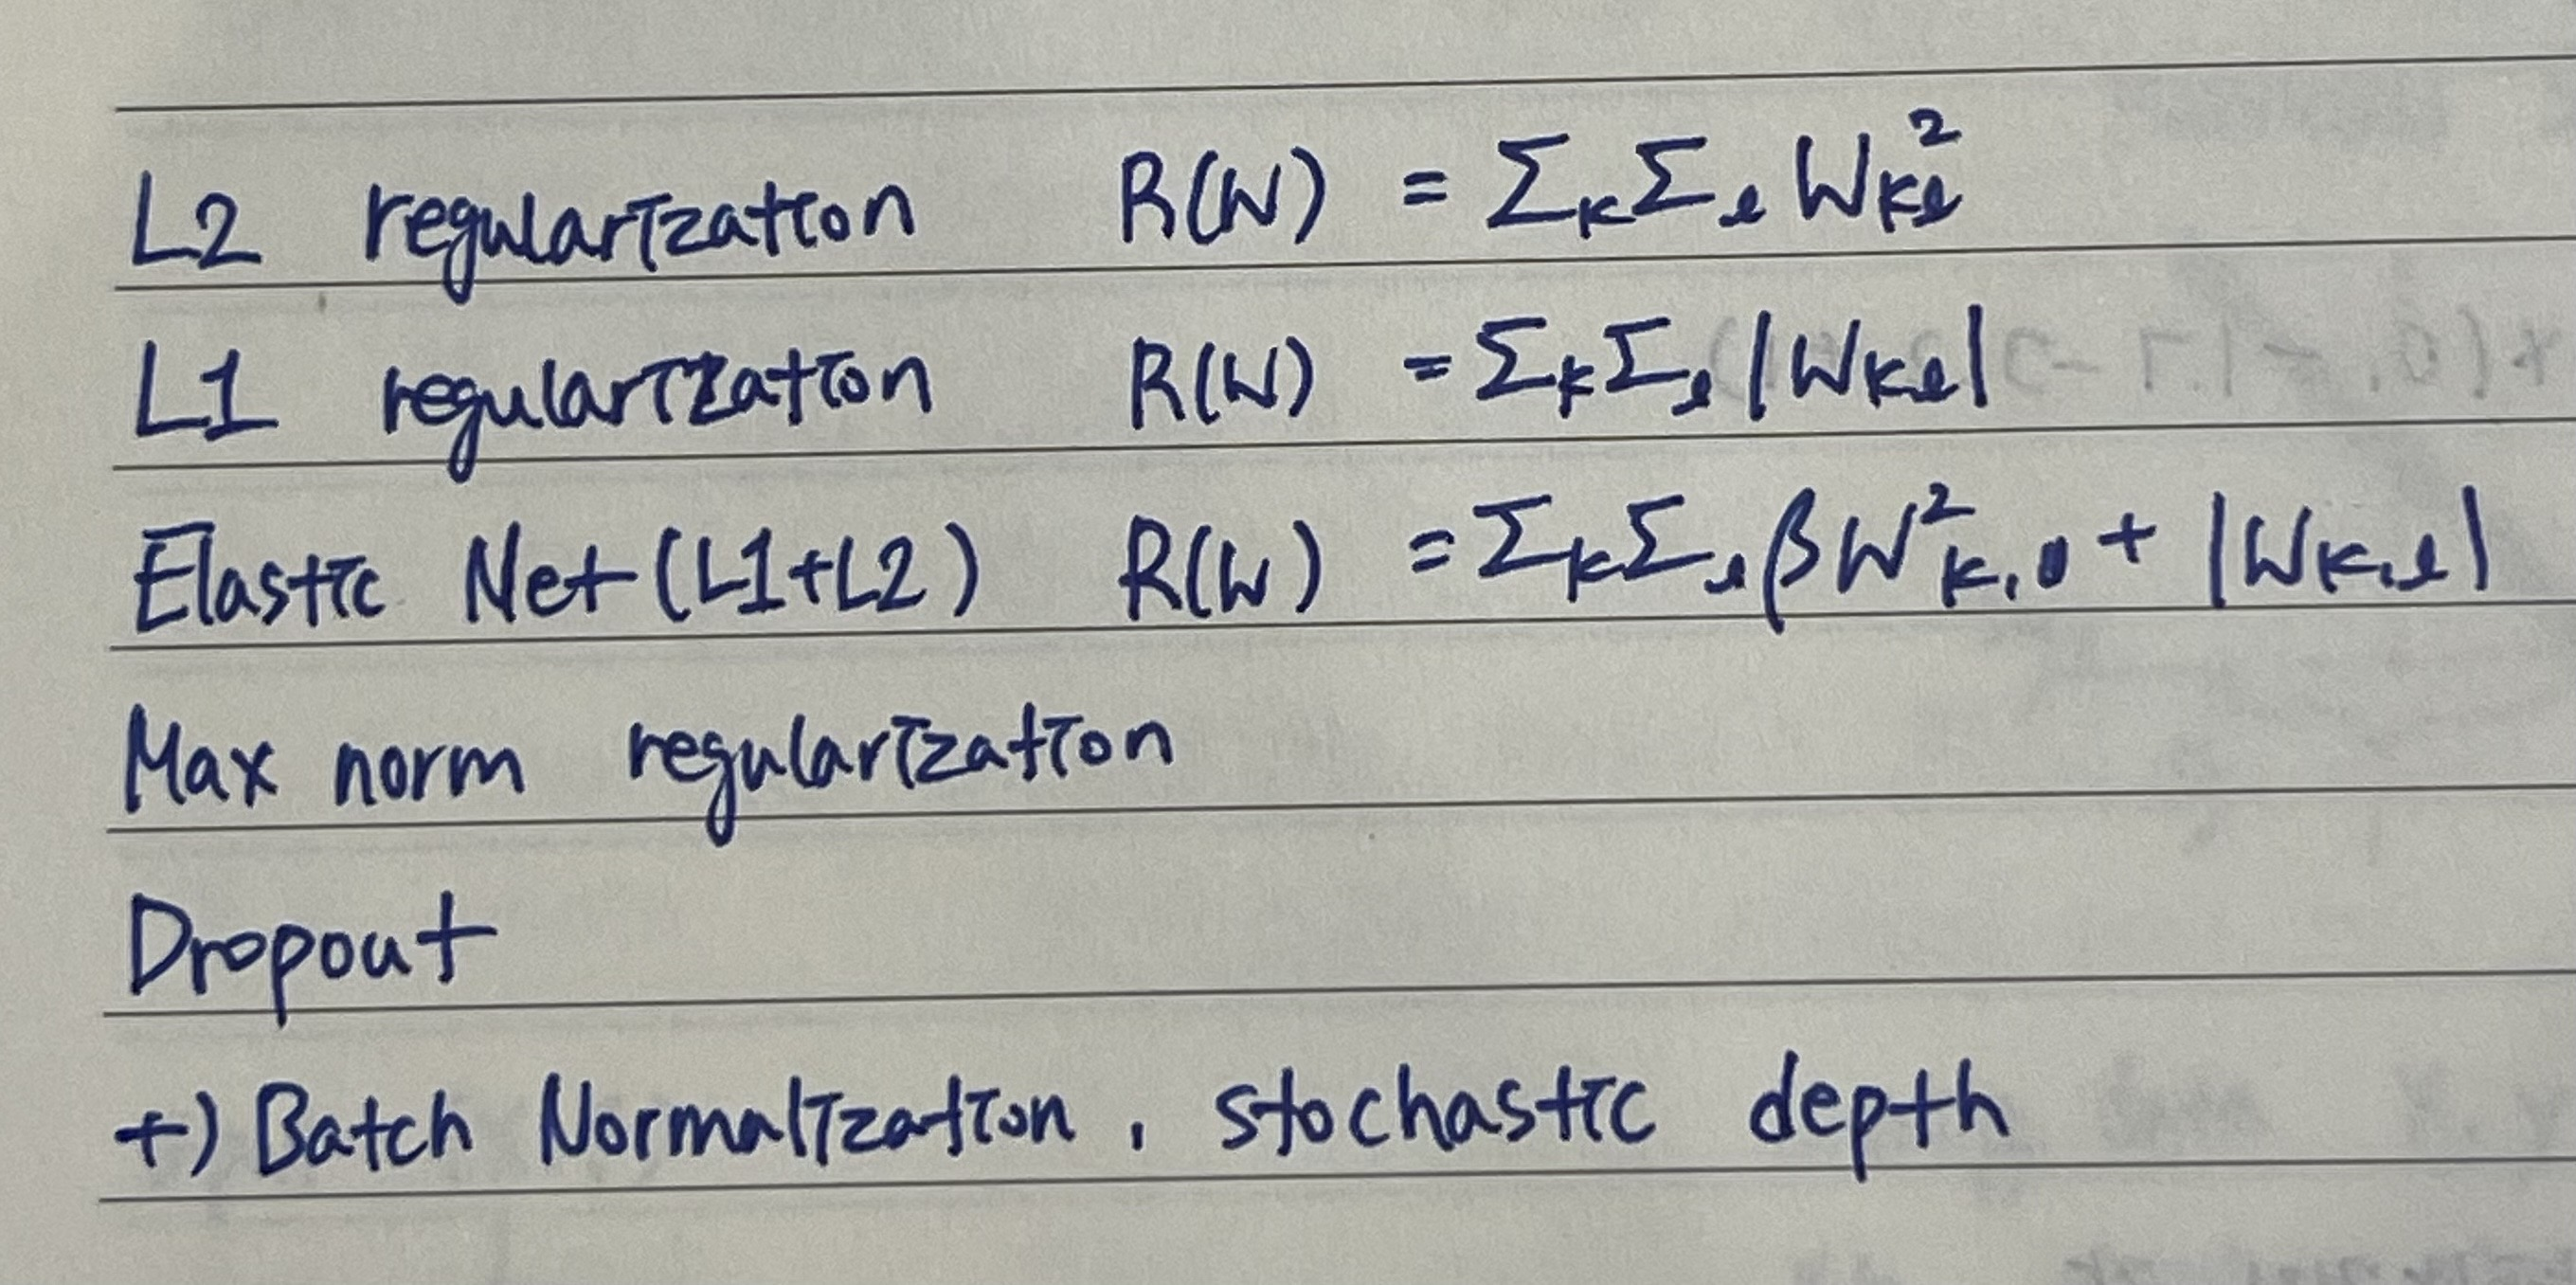 L2 regularization R(W) = Σ_k Σ_ℓ W_kℓ^2
L1 regularization R(W) = Σ_k Σ_ℓ |W_kℓ|
Elastic Net (L1+L2) R(W) = Σ_k Σ_ℓ βW^2_k,ℓ + |W_k,ℓ|
Max norm regularization
Dropout
+) Batch Normalization, stochastic depth